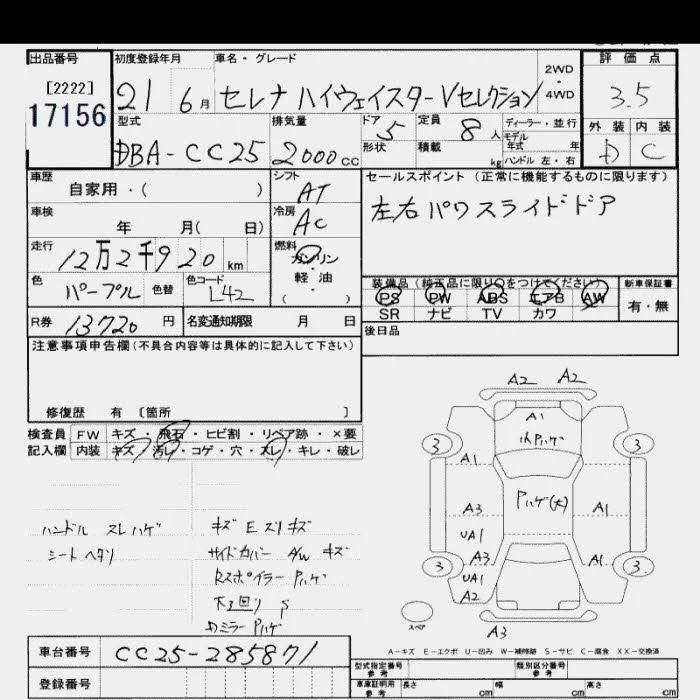 出品番号 初度登録年月 車名・グレード 評価点
[2222]
17156
21 6月 セレナ ハイウェイスターVセレクション 2WD・4WD 3.5
型式 排気量 ドア 5 定員 8人 ディーラー・並行 外装 内装
DBA-CC25 2000cc 形状 積載 kg モデル年式 年 ハンドル 左・右 D C
車歴 シフト セールスポイント (正常に機能するものに限ります)
自家用・( ) AT
車検 冷房 左右パワスライドドア
年 月( 日) AC
走行 燃料
12万2千920km ガソリン
色 色替 色コード 軽・油
パープル L42 ・( )
装備品 (純正品に限り○をつけてください) 新車保証書
PS PW ABS エアB AW 有・無
SR ナビ TV カワ
R券 13720円 名変通知期限 月 日 後日品
注意事項申告欄(不具合内容等は具体的に記入して下さい)
修復歴 有 〔箇所 〕
検査員 FW キズ・飛石・ヒビ割・リペア跡・×要
記入欄 内装 キズ・汚レ・コゲ・穴・スレ・キレ・破レ
ハンドル スレハゲ
シートヘタリ
キズ E スリキズ
サイドカバー A/W キズ
Rスポイラー Pハゲ
下回り S
ミラー Pハゲ
A2 A2
A1
Pハゲ
3 3
A1
Pハゲ(大)
A3 A1
UA1
A3 A1
3 3
UA1
A2
スペア
A3
A-キズ E-エクボ U-凹み W-補修跡 S-サビ C-腐食 XX-交換済
車台番号 CC25-285871
登録番号
型式指定番号 参考 類別区分番号 参考
車庫証明用 参考 長さ cm 幅 cm 高さ cm